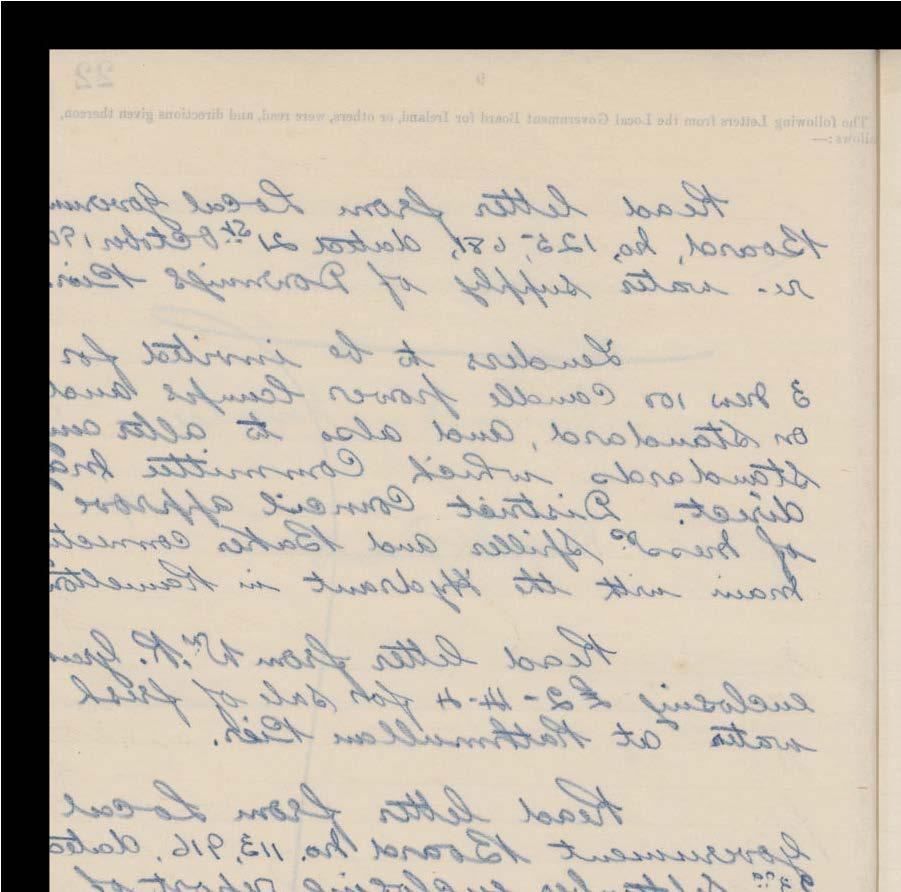 22
9
The following Letters from the Local Government Board for Ireland, or others, were read, and directions given thereon,
ollows:—
Read letter from Local Governm
Board, No. 125,681, dated 21st October 19
re. water supply of Downings Pier
Tenders to be invited for
3 New 100 Candle power lamps and
or Standard, and also to alter
Standards which Committee may
direct. District Council approve
of Messrs. Spiller and Baker connecti
main with the Hydrant in Ramelton
Read letter from Wm. R.
enclosing £2-14-4 for sale of fresh
water at Rathmullan Pier.
Read letter from Local
Government Board No. 113,916, dated
enclosing report of